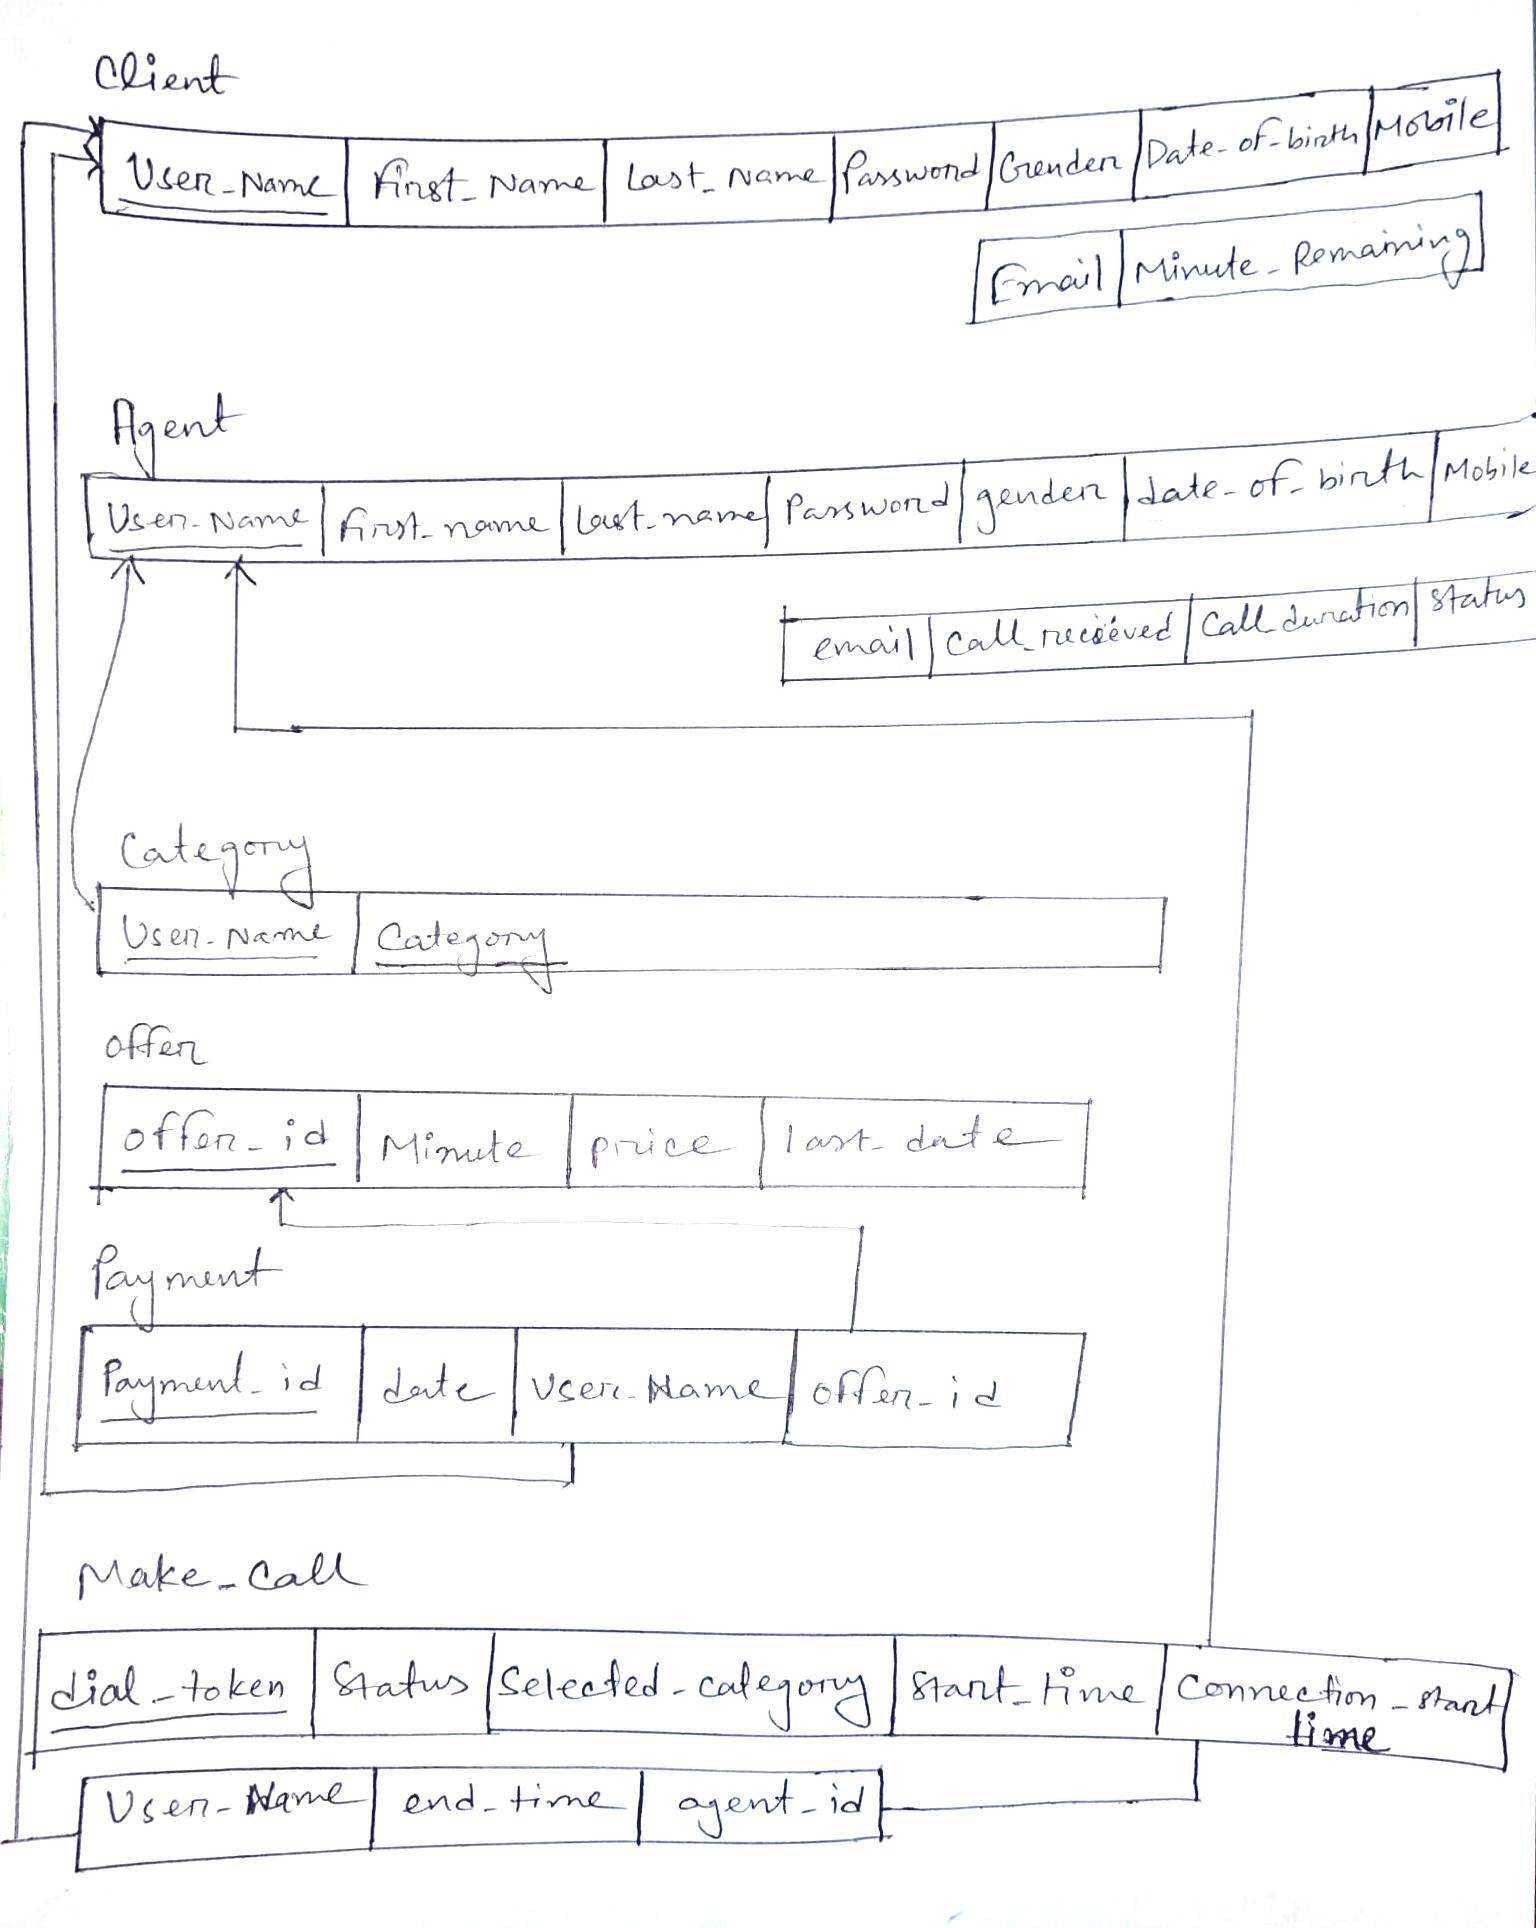 Client
User-Name First-Name Last-Name Password Gender Date-of-birth Mobile
Email Minute-Remaining
Agent
User-Name first-name last-name Password gender date-of-birth Mobile
email call-recieved Call-duration status
Category
User-Name Category
offer
offer-id Minute price last-date
Payment
Payment-id date User-Name offer-id
Make-Call
dial-token Status Selected-category Start-time Connection-start
time
User-Name end-time agent-id